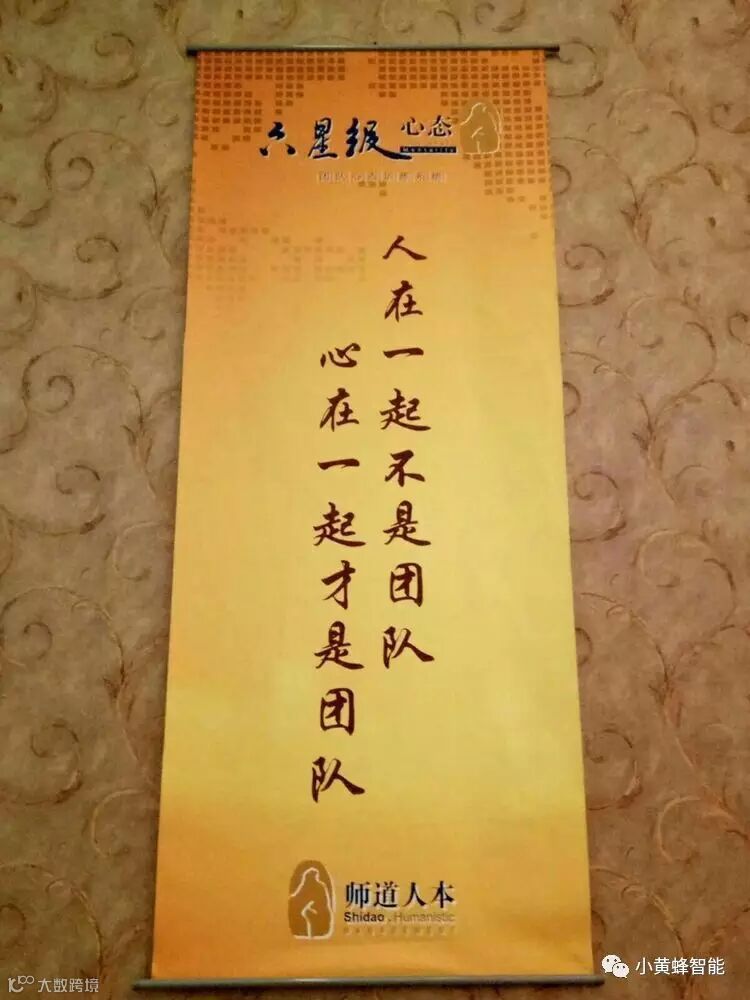 六星级
心态
Mentality
人在一起不是团队
心在一起才是团队
师道人本
Shidao . Humanistic
小黄蜂智能
大数跨境